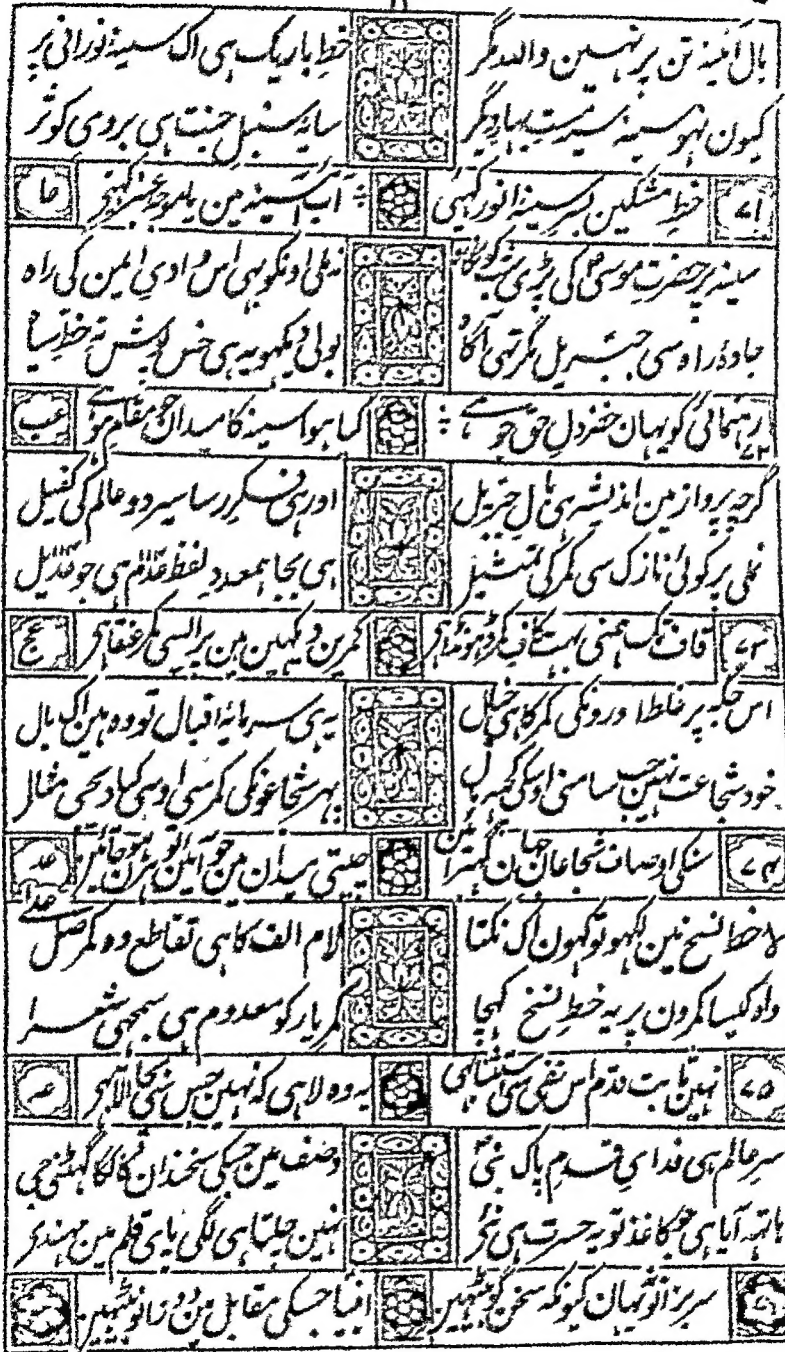 بال آئینۂ تن پر نہین واللہ مگر خطِ باریک ہی اک سینۂ نورانی پر
کیون نہو سینۂ سے بہار دیگر سایۂ سنبلِ جنت ہی بروی کوثر
۷۱ خطِ مشکین بسرِ سینۂ انور کہیی آب آئینہ مین یا موجۂ عنبر کہیی عا
سینہ پر حضرتِ موسیٰ کی پڑی جب کہ نگاہ نہ ملی اونکو بہی اس وادیِ ایمن کی راہ
جادۂ راہ سی جبریل مگر تہی آگاہ بولی دیکہو یہ ہی خس پوش تہ خطِ سیاہ
۷۲ رہنمائی کو یہان خضر دلِ حق جو ہے کیا ہوا سینہ کا میدان جو مقامِ ہو ہے عب
گرچہ پرواز مین اندیشہ ہی بالِ جبریل اور ہی فکرِ رسا سیرِ دو عالم کی کفیل
نملی پر کوئی نازک سی کمر کی تمثیل ہی بجا ہمعددِ لفظِ عدم ہی جو عدیل
۷۳ قاف تک ہمنی بہت کافِ کمر ڈہونڈا ہی کمرین دیکہین ہین پر ایسی کمر عنقا ہی عج
اس جگہ پر غلط اورونکی کمر کا ہی خیال یہ ہی سرمایۂ اقبال تو وہ ہین اک بال
خود شجاعت نہین جب سامنی اوسکی کچہ مال پہر شجاعونکی کمر سی اوسی کیا دیجی مثال
۷۴ سنکی اوصاف شجاعانِ جہان گہبرائین چیتی میدان مین جو آئین تو ہرن ہو جائین عد
لا خطِ نسخ مین لکہو تو کہون اک نکتا لام الف کا ہی تقاطع وہ کمر صلِ علےٰ
واہ کیسا کمرون پر یہ خطِ نسخ کہچا کمرِ یار کو معدوم ہی سمجہی شعرا
۷۵ نہین ثابت قدم اس نفی سی استثنا ہی یہ وہ لا ہی کہ نہین جس سی بجا الّا ہی عہ
سرِ عالم ہی فدایِ قدمِ پاکِ نبی وصف مین جسکی سخندان کا لگا گہٹنی جی
ہاتہہ آیا ہی جو کاغذ تو یہ حسرت ہی نئی نہین چلتا ہی لگی پایِ قلم مین مہندی
۷۶ سرِ زانو یہان کیونکہ سخن گو بیٹہین انبیا جسکی مقابل مین دو زانو بیٹہین